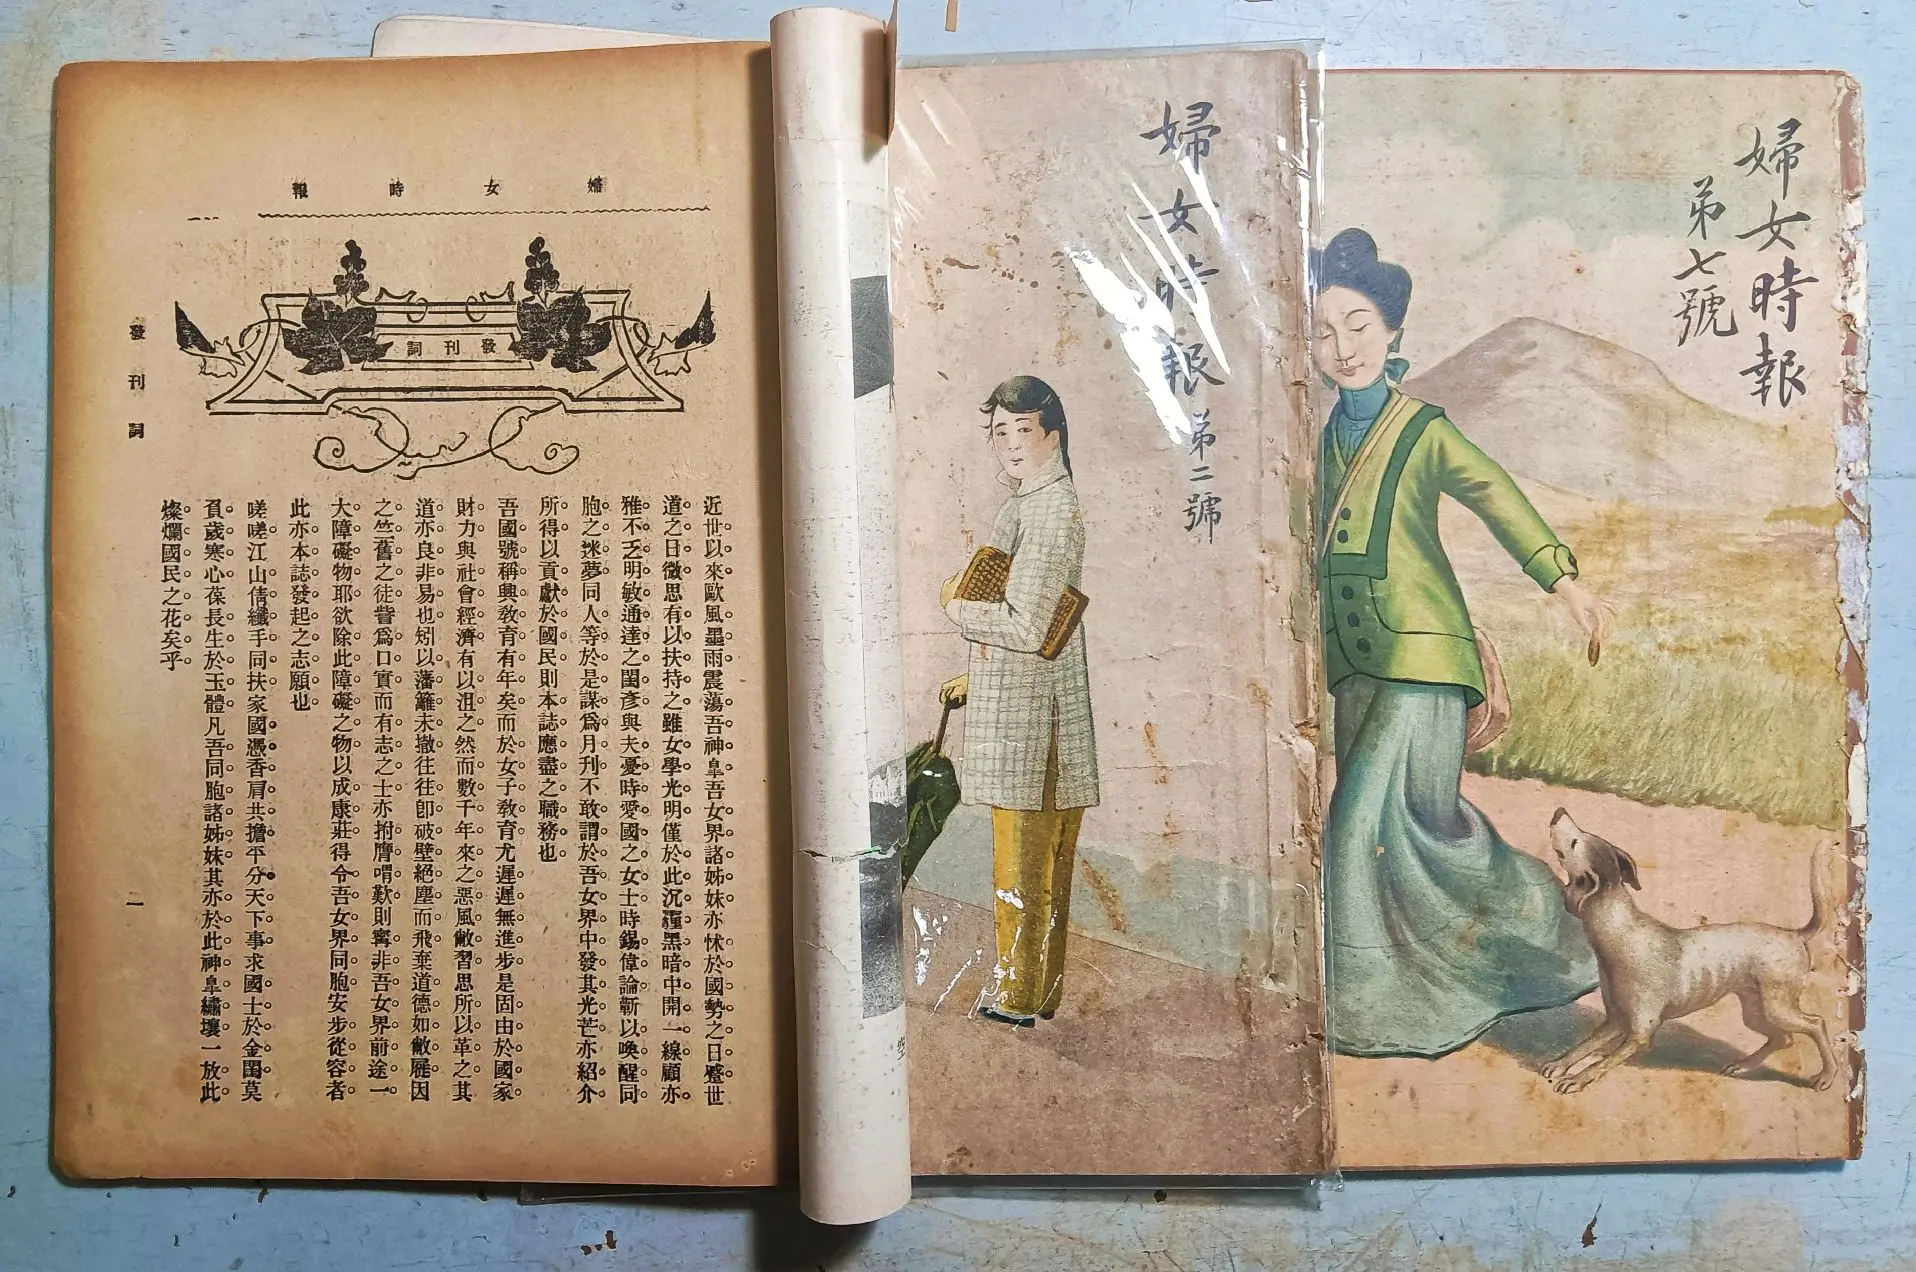 婦女時報
發刊詞
近世以來歐風墨雨震蕩吾神皐吾女界諸姊妹亦怵於國勢之日蹙世
道之日微思有以扶持之雖女學光明僅於此沉霾黑暗中開一線顧亦
雅不乏明敏通達之閨彥與夫憂時愛國之女士時錫偉論蘄以喚醒同
胞之迷夢同人等於是謀爲月刊不敢謂於吾女界中發其光芒亦紹介
所得以貢獻於國民則本誌應盡之職務也
吾國號稱興敎育有年矣而於女子敎育尤遲遲無進步是固由於國家
財力與社會經濟有以沮之然而數千年來之惡風敝習思所以革之其
道亦良非易也矧以藩籬未撤往往卽破壁絕塵而飛棄道德如敝屣因
之竺舊之徒嘗爲口實而有志之士亦拊膺喟歎則寗非吾女界前途一
大障礙物耶欲除此障礙之物以成康莊得令吾女界同胞安步從容者
此亦本誌發起之志願也
嗟嗟江山倩纖手同扶家國憑香肩共擔平分天下事求國士於金閨莫
負歲寒心葆長生於玉體凡吾同胞諸姊妹其亦於此神皐繡壤一放此
燦爛國民之花矣乎
發刊詞
一
婦女時報
第二號
婦女時報
第七號